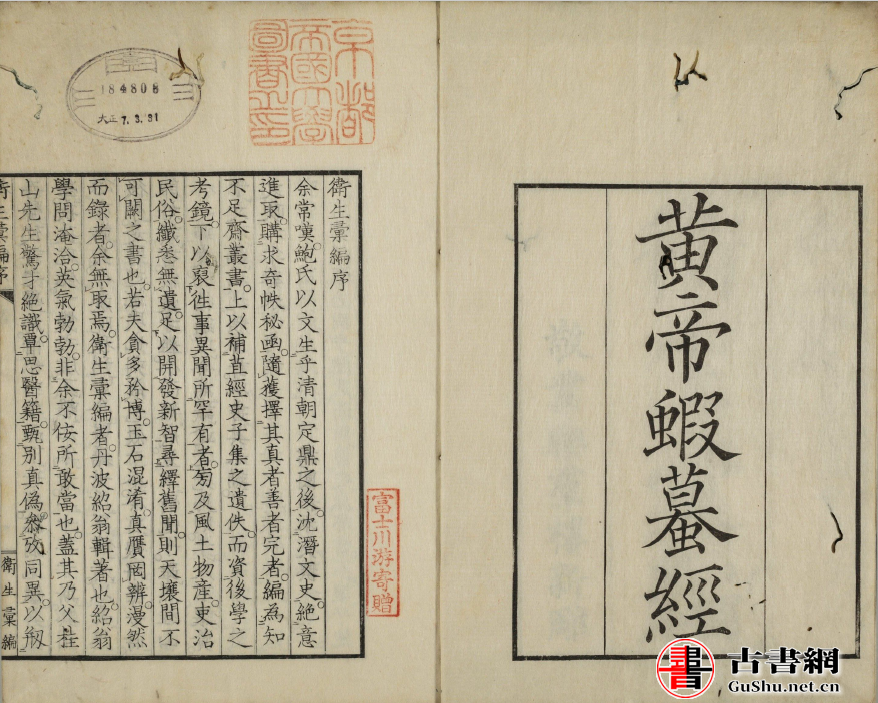 黃帝蝦蟇經
書
古書網
GuShu.net.cn
京都
帝國大學
圖書之印
184808
大正7.3.31
富士川游寄贈
衛生彙編序
余常嘆鮑氏以文生乎清朝定鼎之後沈潛文史絕意
進取購求奇帙秘函隨獲擇其真者善者完者編為知
不足齋叢書上以補苴經史子集之遺佚而資後學之
考鏡下以裒徃事異聞所罕有者旁及風土物產吏治
民俗纖悉無遺足以開發新智尋繹舊聞則天壤間不
可闕之書也若夫貪多矜博玉石混淆真贗罔辨漫然
而錄者余無取焉衛生彙編者丹波紹翁輯著也紹翁
學問淹洽英氣勃勃非余不佞所敢當也蓋其乃父桂
山先生驚才絕識覃思醫籍甄別真偽叅攷同異以剏
衛生彙編序
衛生彙編